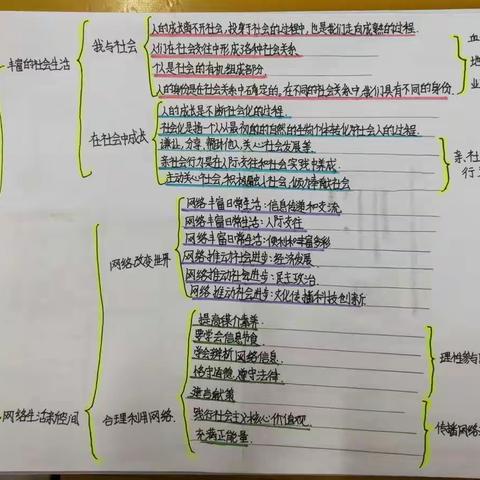 人的成长离不开社会,投身于社会的过程中,也是我们走向成熟的过程.
我与社会
人们在社会交往中形成了各种社会关系.
丰富的社会生活
个人是社会的有机组成部分.
人的身份是在社会关系中确定的,在不同的社会关系中,我们具有不同的身份.
血
地
业
人的成长是不断社会化的过程.
社会化是指一个人从最初的自然的生物个体转化为社会人的过程.
在社会中成长
谦让,分享,帮助他人,关心社会发展等.
亲社会行为在人际交往和社会实践中养成.
主动关心社会,积极融入社会,倾力奉献社会
亲社
行
网络丰富日常生活:信息传递和交流.
网络丰富日常生活:人际交往
网络丰富日常生活:便利和丰富多彩
网络改变世界
网络推动社会进步:经济发展
网络推动社会进步:民主政治.
网络推动社会进步:文化传播科技创新
提高媒介素养.
要学会信息节食
学会辨析网络信息
恪守道德,遵守法律
理性参与
网络生活新空间
合理利用网络.
建言献策
践行社会主义核心价值观
充满正能量.
传播网络